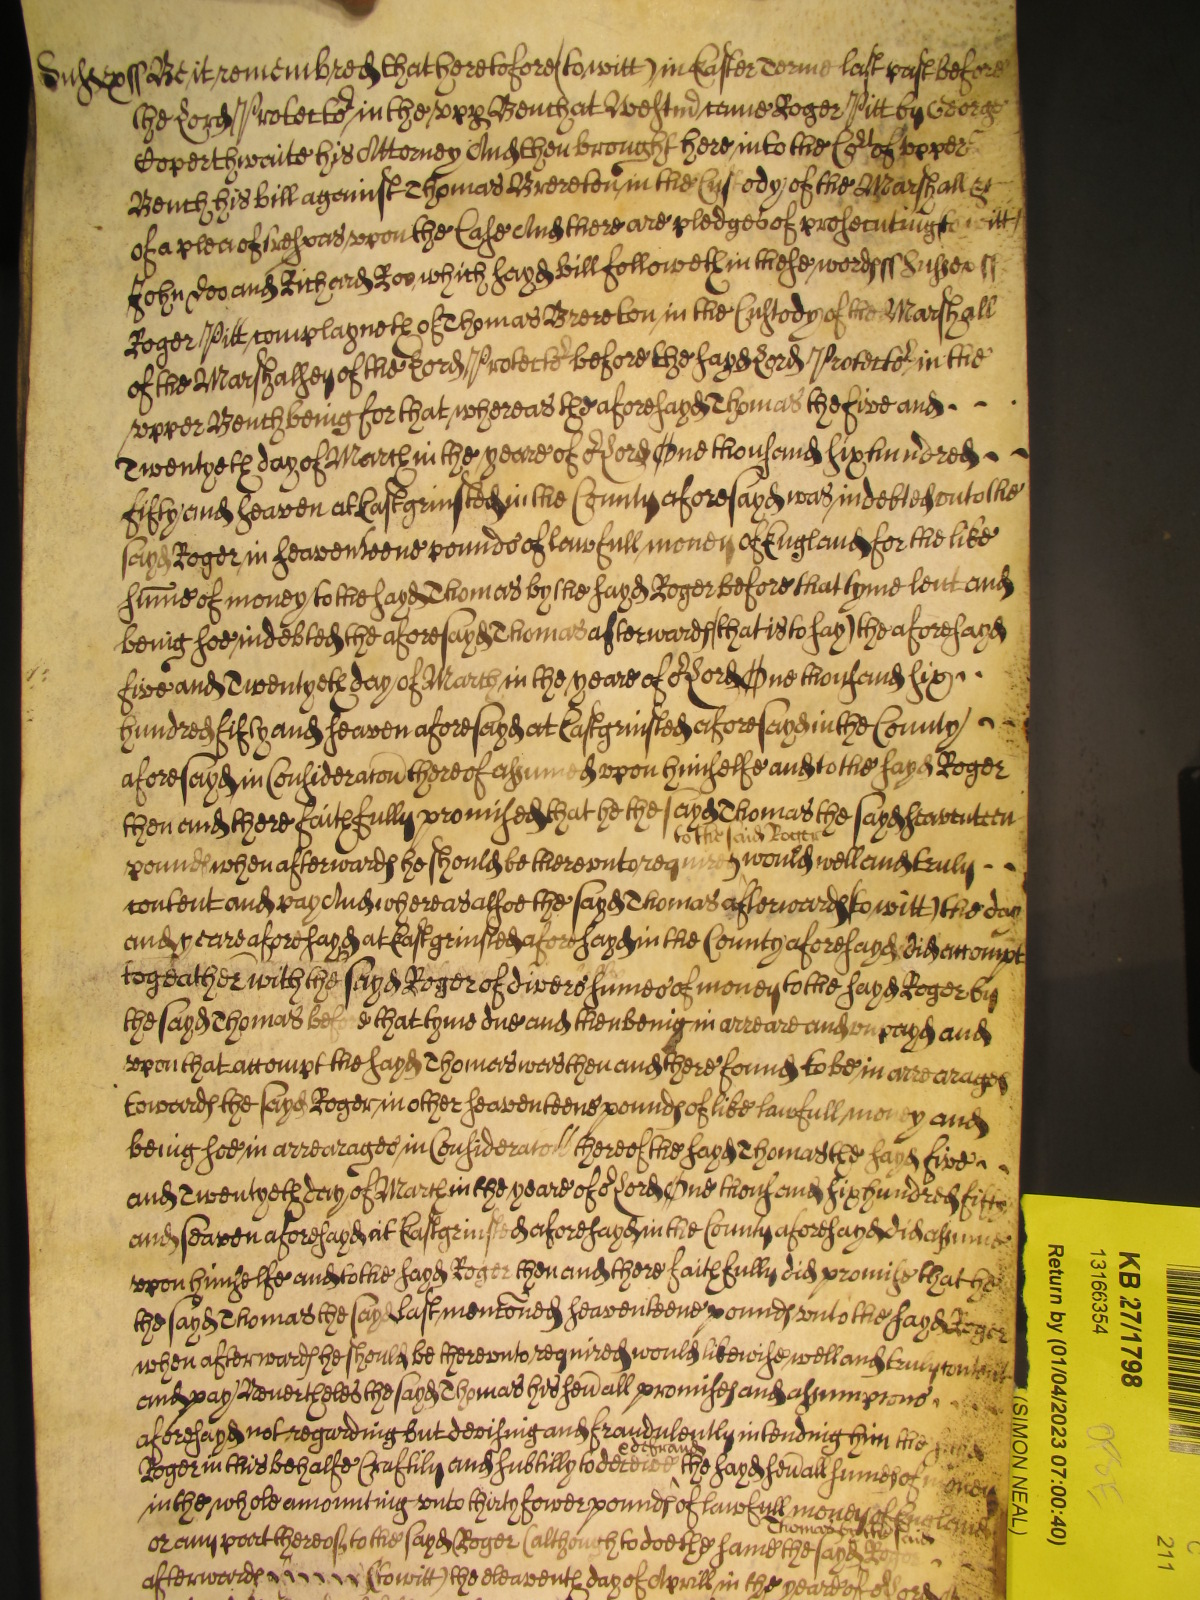 Sussex ss Be it remembred that heretofore (to witt) in Easter Terme last past before
the Lord Protector in the upp Bench at Westm came Roger Pitt by George
Coperthwaite his Attorney And then brought here into the Co^rt of upper
Bench his bill against Thomas Brereton in the Custody of the Marshall &c
of a plea of trespas upon the Case And there are pledges of prosecuting to witt
John Doo and Richard Roo which sayd bill followeth in these words ss Sussex ss
Roger Pitt complayneth of Thomas Brereton in the Custody of the Marshall
of the Marshalsey of the Lord Protecto^r before the sayd Lord Protecto^r in the
upper Bench being for that whereas the aforesayd Thomas the five and
Twentyeth day of March in the yeare of o^r Lord One thousand six hundred
fifty and seaven at Eastgrinsted in the County aforesayd was indebted unto the
sayd Roger in seaventeene pounds of lawfull money of England for the like
summe of money to the sayd Thomas by the sayd Roger before that tyme lent and
being soe indebted the aforesayd Thomas afterwards (that is to say) the aforesayd
five and Twentyeth day of March in the yeare of o^r Lord One thousand six
hundred fifty and seaven aforesayd at Eastgrinsted aforesayd in the County
aforesayd in Consideracon thereof assumed upon himselfe and to the sayd Roger
then and there faithfully promised that he the sayd Thomas the sayd seaventeen
to the said Roger
pounds when afterwards he should be thereunto required would well and truly
content and pay And whereas alsoe the sayd Thomas afterwards (to witt) the day
and yeare aforesayd at Eastgrinsted aforesayd in the County aforesayd did accompt
togeather with the sayd Roger of divers sumes of money to the sayd Roger by
the sayd Thomas before that tyme due and then being in arreare and unpayd and
upon that accompt the sayd Thomas was then and there found to be in arrearages
towards the sayd Roger in other seaventeene pounds of like lawfull money and
being soe in arrearages in Consideracon thereof the sayd Thomas the sayd five
and Twentyeth day of March in the yeare of o^r Lord One thousand six hundred fifty
and seaven aforesayd at Eastgrinsted aforesayd in the County aforesayd did assume
upon himselfe and to the sayd Roger then and there faithfully did promise that he
the sayd Thomas the sayd last mencõned seaventeene pounds unto the sayd Roger
when afterwards he should be thereunto required would likewise well and truly content
and pay Neverthelesse the sayd Thomas his seuall promises and assumpcons
aforesayd not regarding but devising and fraudulently intending him the
Roger in this behalfe Craftily and subtilly to deceive the sayd seuall sumes of money
& defraud
in the whole amounting unto thirty fower pounds of lawfull money of England
Thomas by the said
or any part thereof to the sayd Roger (although to doe the same the sayd Roger
afterwards (to witt) the eleaventh day of Aprill in the yeare of o^r Lord
KB 27/1798
13166354
Return by (01/04/2023 07:00:40)
(SIMON NEAL)
211